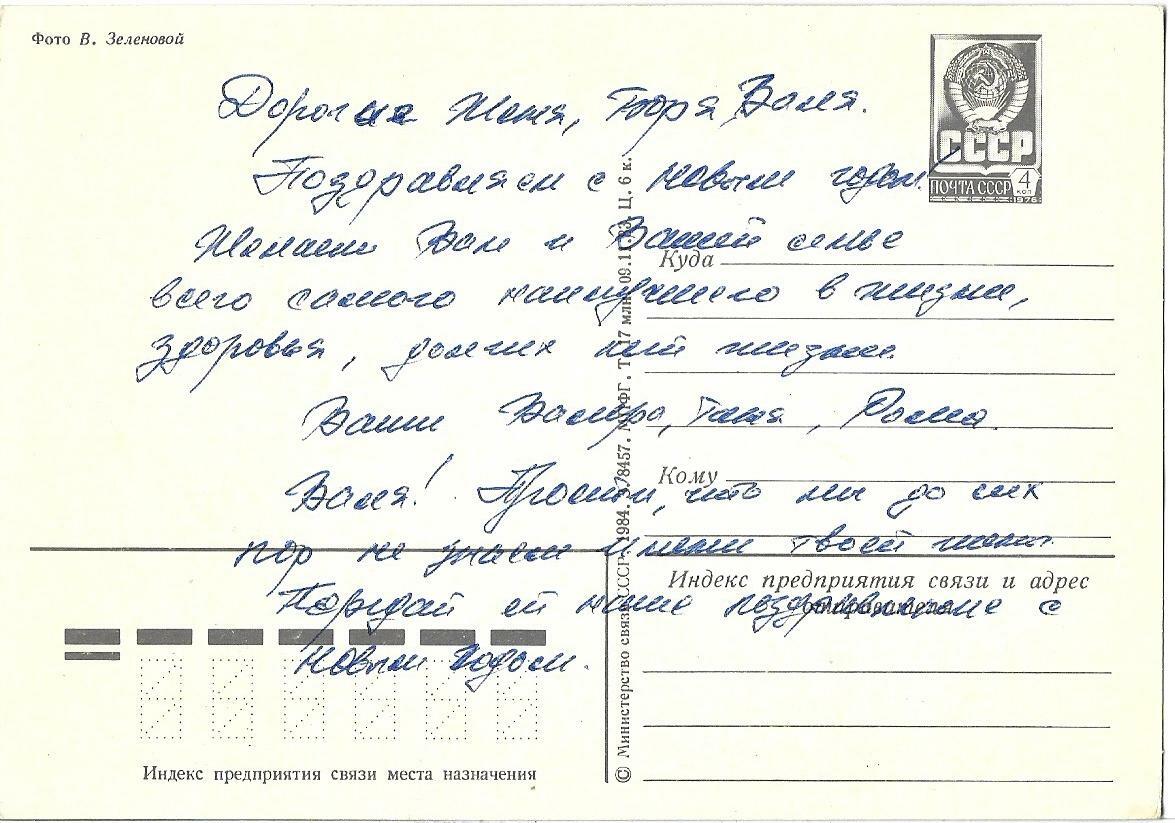 Фото В. Зеленовой
СССР
ПОЧТА СССР
4
коп
1978
Дорогие Женя, Боря, Валя.
Поздравляем с новым годом!
Желаем Вам и Вашей семье
всего самого наилучшего в жизни,
здоровья, долгих лет жизни.
Ваши Валера, Таня, Рома.
Валя! Прости, что мы до сих
пор не знаем имени твоей жены.
Передай ей наше поздравление с
новым годом.
Куда
Кому
Индекс предприятия связи и адрес
отправителя
Индекс предприятия связи места назначения
© Министерство связи СССР. 1984. З.78457. МПФГ. Т. 17 млн. 09.11.83. Ц. 6 к.